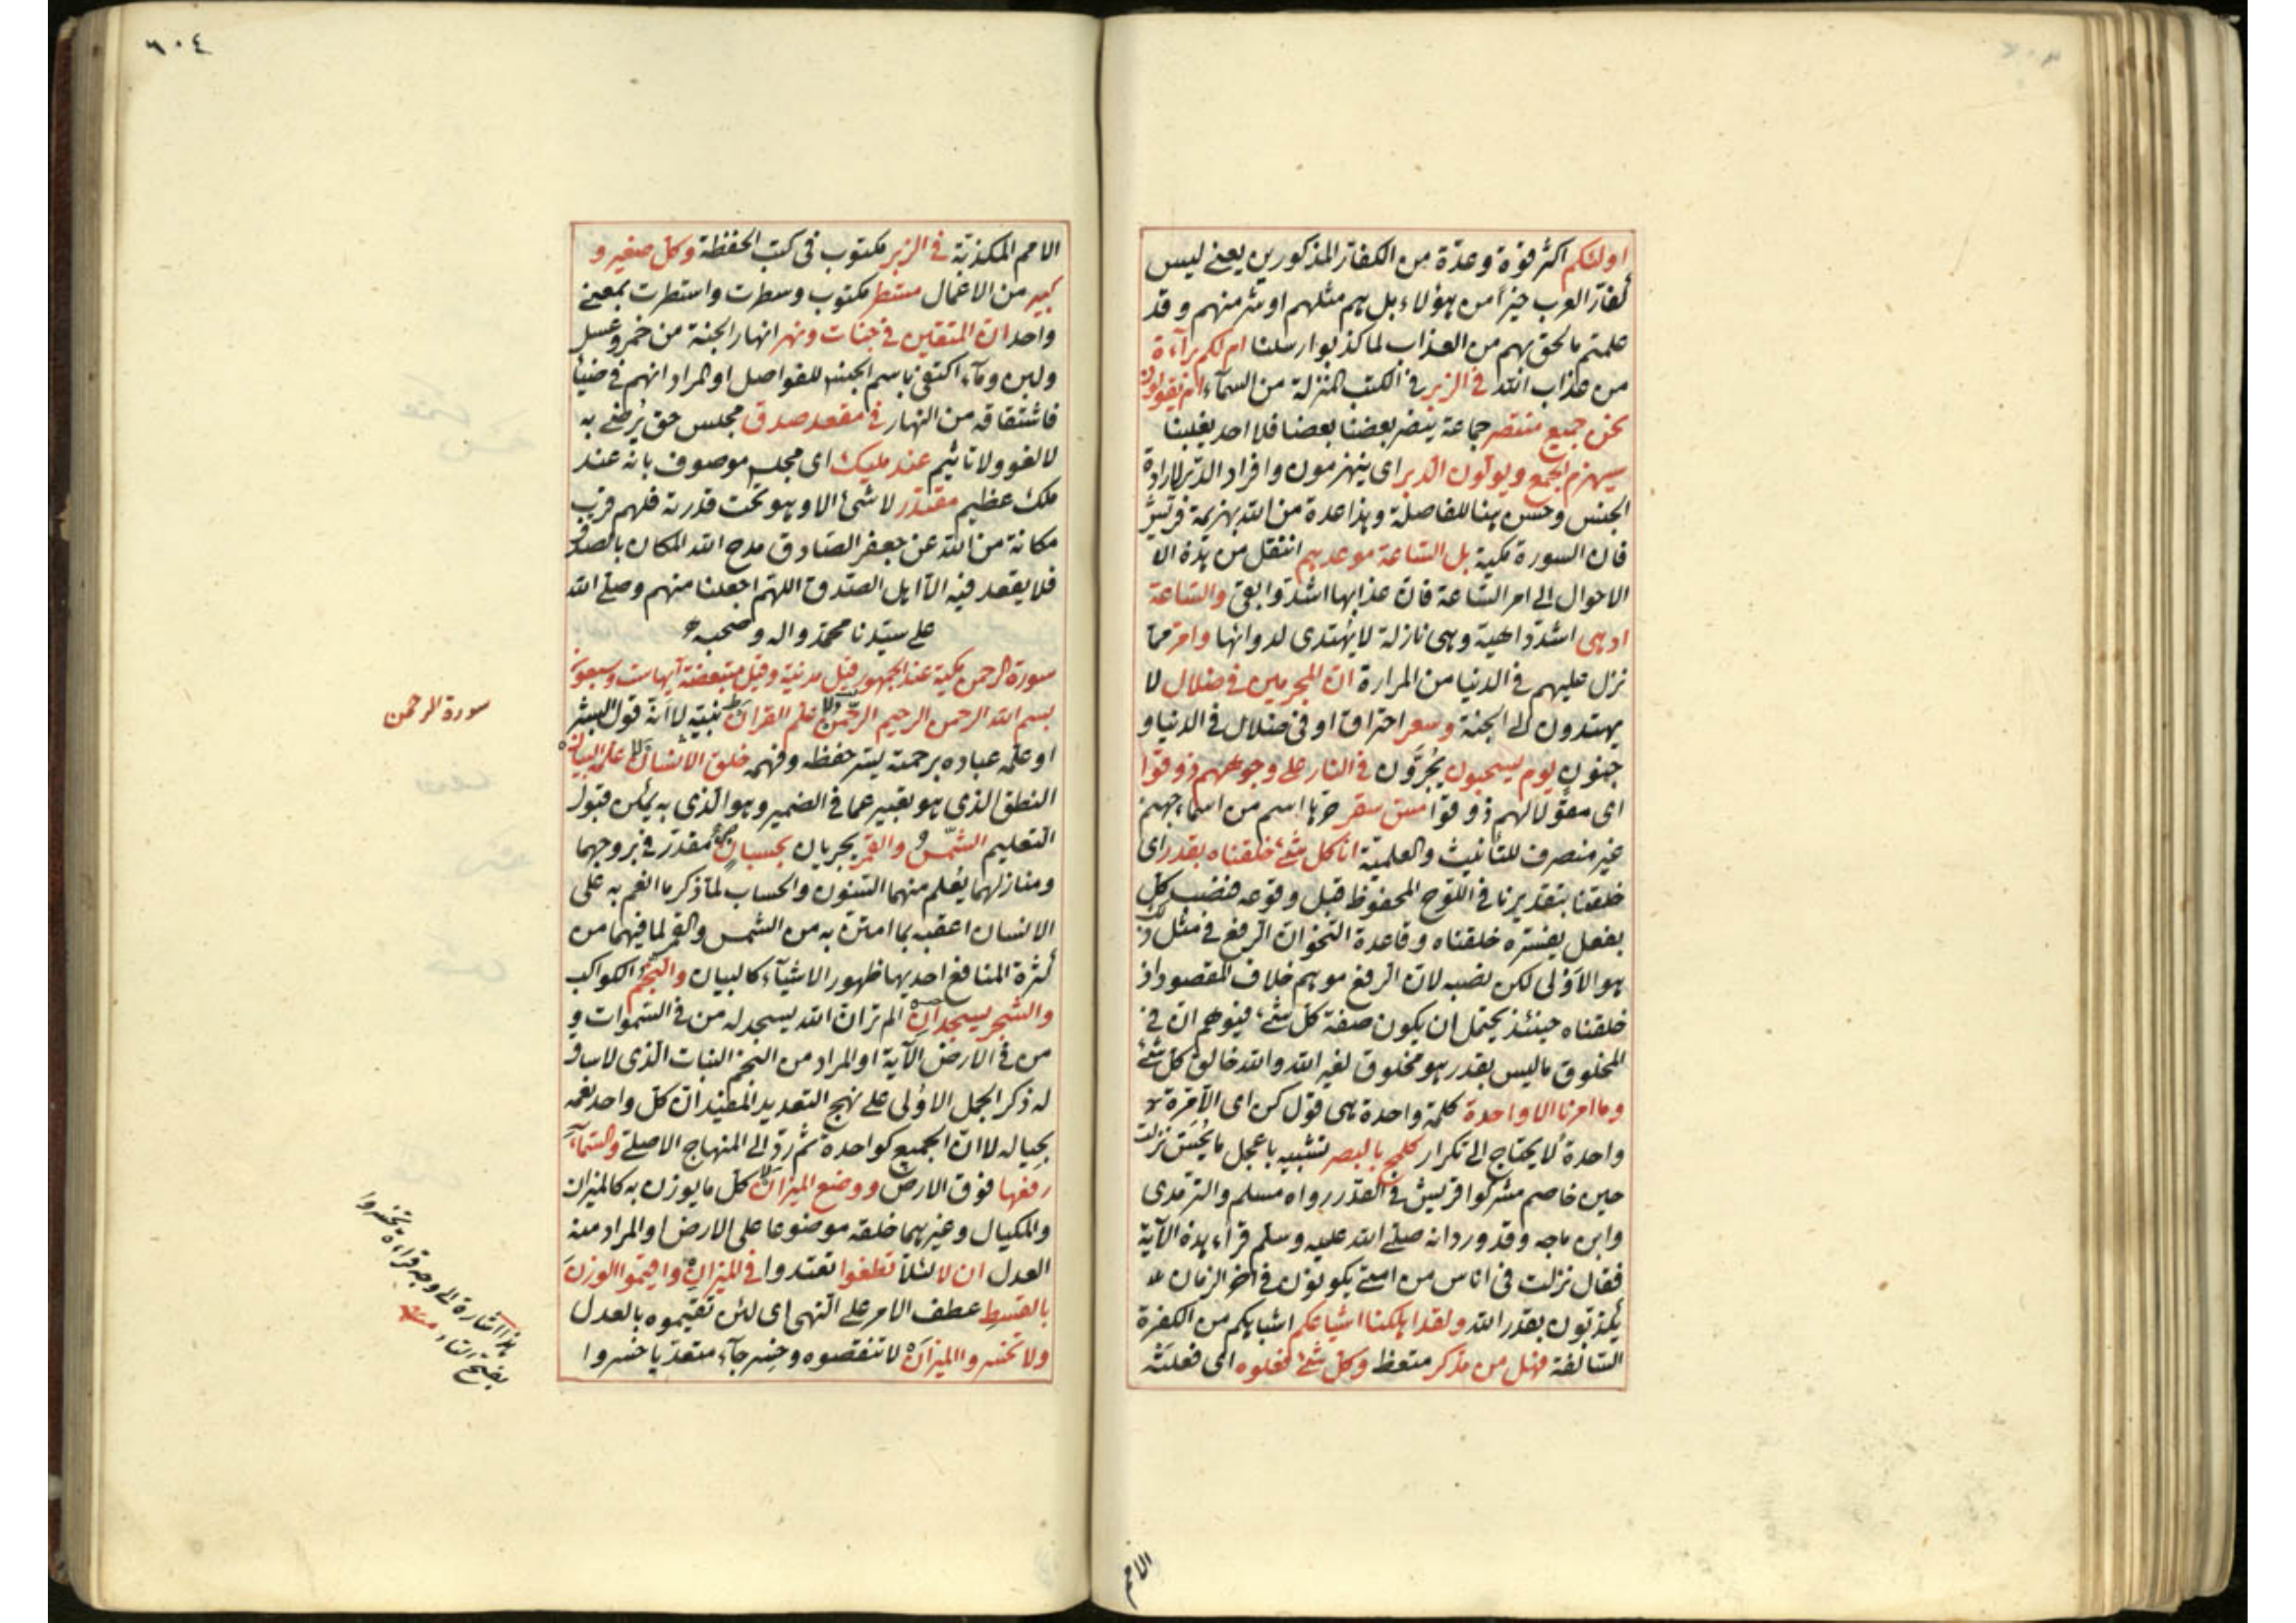 اولئكم اكثر قوة وعدة من الكفار المذكورين يعنى ليس
كفار العرب خيرا من هؤلاء بل هم مثلهم او شر منهم وقد
علمتم ما لحق بهم من العذاب لما كذبوا رسلنا ام لكم براءة
من عذاب الله فى الزبر فى الكتب المنزلة من السماء ام يقولون
نحن جميع منتصر جماعة ينصر بعضنا بعضنا فلا احد يغلبنا
سيهزم الجمع ويولون الدبر اى ينهزمون وافراد الدبر لارادة
الجنس وحسن هنا للفاصلة وهذا عدة من الله بهزيمة قريش
فان السورة مكية بل الساعة موعدهم انتقل من هذه الا
الاحوال الى امر الساعة فان عذابها اشد وابقى والساعة
ادهى اشد داهية وهى نازلة لا يهتدى لدوائها وامر مما
نزل عليهم فى الدنيا من المرارة ان المجرمين فى ضلال لا
يهتدون الى الجنة وسعر احتراق او فى ضلال فى الدنيا و
جنون يوم يسحبون يجرون فى النار على وجوههم ذوقوا
اى مقولا لهم ذوقوا مس سقر حرها اسم من اسماء جهنم
غير منصرف للتأنيث والعلمية انا كل شئ خلقناه بقدر اى
خلقنا بتقديرنا فى اللوح المحفوظ قبل وقوعه فنصب كل
بفعل يفسره خلقناه وقاعدة النحو ان الرفع فى مثل ذلك
هو الاولى لكن نصبه لان الرفع موهم خلاف المقصود اذ
خلقناه حينئذ يحتمل ان يكون صفة كل شئ فيوهم ان فى
المخلوق ما ليس بقدر هو مخلوق لغير الله والله خالق كل شئ
وما امرنا الا واحدة كلمة واحدة هى قول كن اى الا مرة
واحدة لا يحتاج الى تكرار كلمح بالبصر تشبيه باعجل ما يحس نزلت
حين خاصم مشركوا قريش فى القدر رواه مسلم والترمذى
وابن ماجه وقد ورد انه صلى الله عليه وسلم قراء هذه الآية
فقال نزلت فى اناس من امتى يكونون فى اخر الزمان
يكذبون بقدر الله ولقد اهلكنا اشياعكم اشباهكم من الكفرة
السالفة فهل من مدكر متعظ وكل شئ فعلوه اى فعلته
الامم
٦٠٤
الامم المكذبة فى الزبر مكتوب فى كتب الحفظة وكل صغير و
كبير من الاعمال مستطر مكتوب وسطرت واستطرت بمعنى
واحد ان المتقين فى جنات ونهر انهار الجنة من خمر وعسل
ولبن وماء اكتفى باسم الجنس للفواصل او المراد انهم فى ضياء
فاشتقاقه من النهار فى مقعد صدق مجلس حق يرضى به
لا لغو ولا تاثيم عند مليك اى مجلس موصوف بانه عند
ملك عظيم مقتدر لا شئ الا وهو تحت قدرته فلهم قرب
مكانة من الله عن جعفر الصادق مدح الله المكان بالصدق
فلا يقعد فيه الا اهل الصدق اللهم اجعلنا منهم وصلى الله
على سيدنا محمد واله وصحبه
سورة الرحمن مكية عند الجمهور قيل مدنية وقيل متبعضة آيها ست وسبعون
سورة الرحمن
بسم الله الرحمن الرحيم الرحمن علم القران نبيه لا انه قول البشر
او علمه عباده برحمته يسر حفظه وفهمه خلق الانسان علمه البيان
النطق الذى هو تعبير عما فى الضمير وهو الذى به يمكن قبول
التعليم الشمس والقمر يجريان بحسبان مقدر فى بروجهما
ومنازلهما يعلم منهما السنون والحساب لما ذكر ما انعم به على
الانسان اعقبه بما امتن به من الشمس والقمر لما فيهما من
كثرة المنافع احديها ظهور الاشياء كالبيان والنجم الكواكب
والشجر يسجدان الم تر ان الله يسجد له من فى السموات و
من فى الارض الآية او المراد من النجم النبات الذى لا ساق
له ذكر الجمل الاولى على نهج التعديد المفيد ان كل واحد نعمة
بحياله لا ان الجميع كواحدة ثم رد الى المنهاج الاصلى والسماء
رفعها فوق الارض ووضع الميزان كل ما يوزن به كالميزان
والمكيال وغيرهما خلقه موضوعا على الارض او المراد منه
العدل ان لا لئلا تطغوا تعتدوا فى الميزان واقيموا الوزن
بالقسط عطف الامر على النهى اى لئن تقيموه بالعدل
ولا تخسروا الميزان لا تنقصوه وخسر جاء متعديا خسروا
هذا اشارة الى وجه قراءة تخسروا
بفتح التاء منه